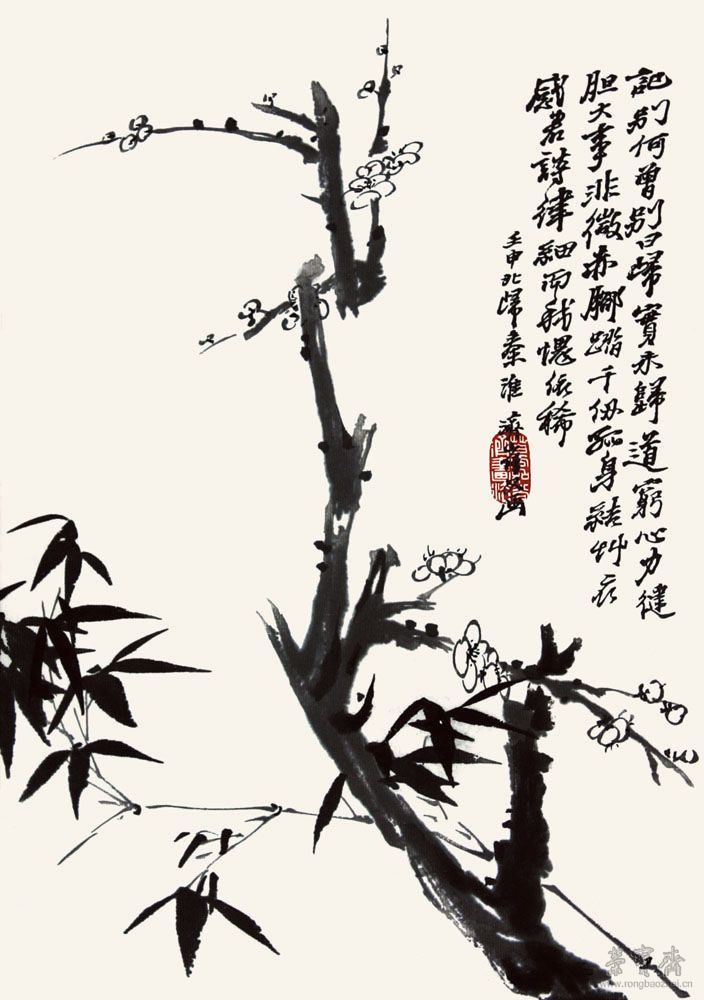 記別何曾別曰歸實未歸道窮心力健
胆大事非微赤腳踏千仞孤身結艸衣
感君詩律細而我愧依稀
壬申北歸秦淮
榮寶齋
www.rongbaozhai.cn